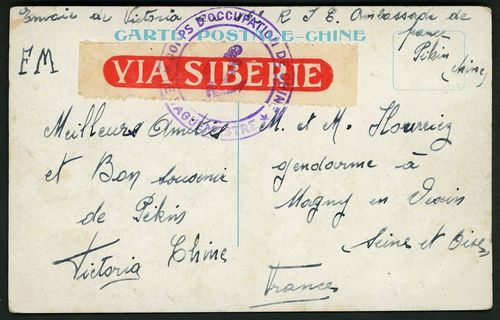 Envoie de Victoria R I C Ambassade de
france
Pékin
(Chine)
CARTE POSTALE-CHINE
FM
VIA SIBÉRIE
CORPS D'OCCUPATION DE CHINE
Meilleurs Amitiés
et Bon Souvenir
de Pékin
Chine
Victoria
M. et M.
gendarme à
Magny en Vexin
Seine et Oise
France